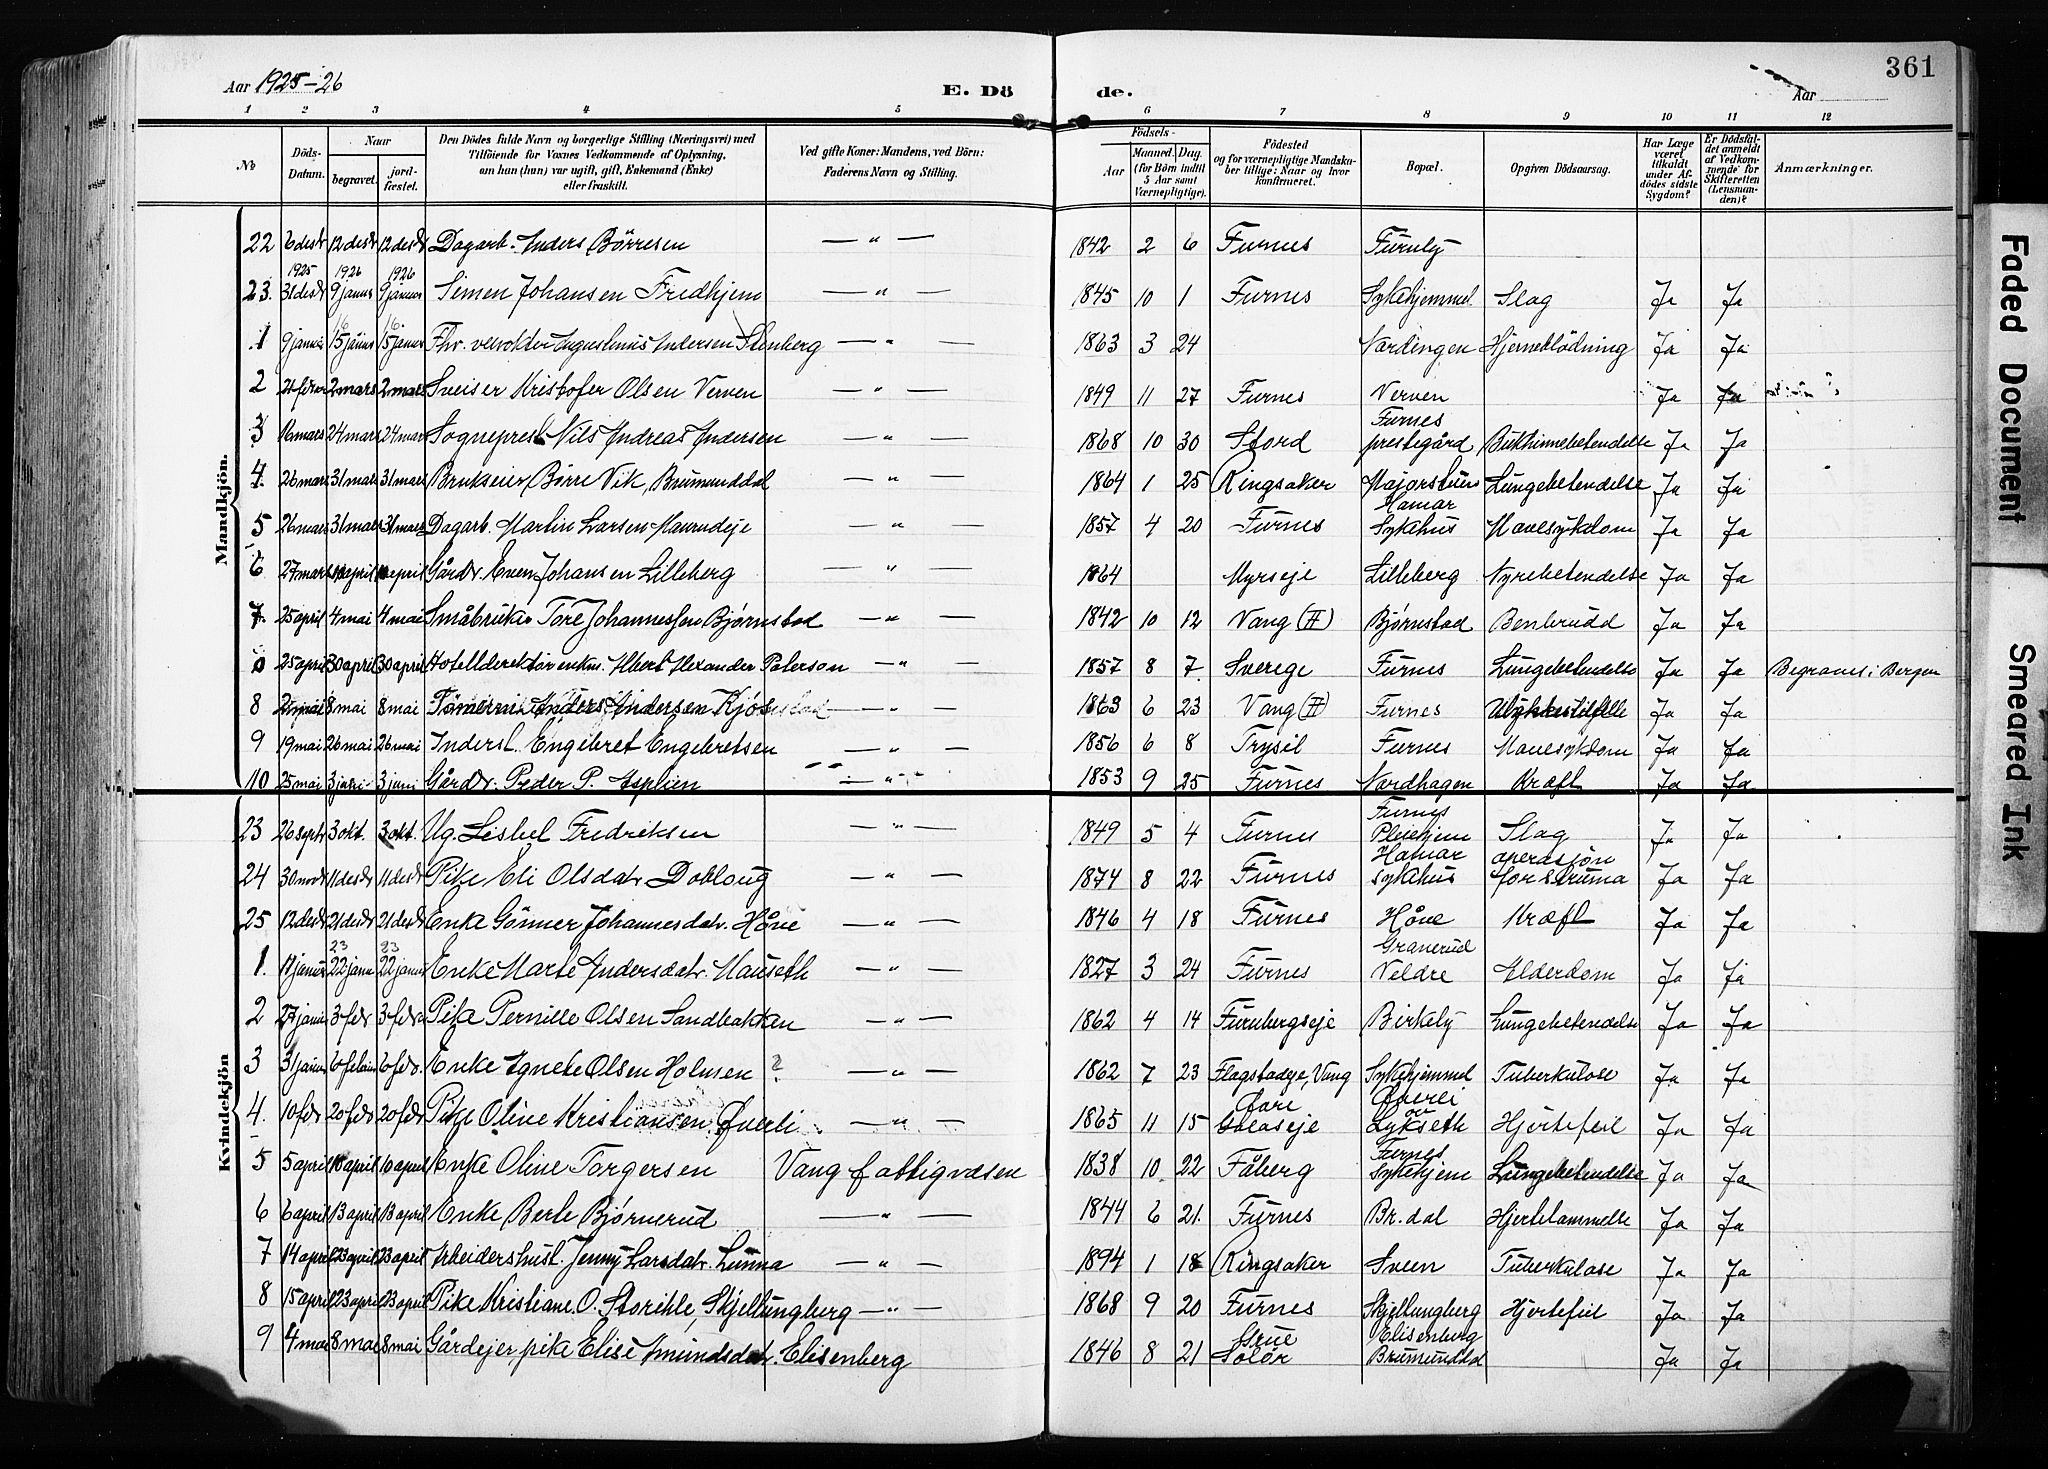 361
Aar 1925-26
E. Dö
de.
Aar
1 2 3 4 5 6 7 8 9 10 11 12
No
Döds-Datum.
Naar
begravet.
jordfæstet.
Den Dödes fulde Navn og borgerlige Stilling (Næringsvei) med
Tilföiende for Voxnes Vedkommende af Oplysning,
om han (hun) var ugift, gift, Enkemand (Enke)
eller fraskilt.
Ved gifte Koner: Mandens, ved Börn:
Faderens Navn og Stilling.
Födsels-
Aar
Maaned. Dag.
(for Börn indtil 5 Aar samt Værnepligtige).
Födested
og for værnepligtige Mandskaber tillige: Naar og hvor konfirmeret.
Bopæl.
Opgiven Dödsaarsag.
Har Læge været tilkaldt under Afdödes sidste Sygdom?
Er Dödsfaldet anmeldt af Vedkommende for Skifteretten (Lensmanden)?
Anmærkninger.
Mandkjön.
22 6 desbr 12 desbr 12 desbr Dagarb. Anders Börresen — " — 1842 2 6 Furnes Furuly
1925 1926 1926
23. 31 desbr 9 januar 9 januar Simen Johansen Fredhjem — " — 1845 10 1 Furnes Sykehjemmet Slag Ja Ja
16 16
1 9 januar 15 januar 15 januar Fhv. Augustinus Andersen Stenberg — " — 1863 3 24 Nordingen Hjerneblödning Ja Ja
2 2 mars 2 mars Sveiser Kristofer Olsen Verven — " — 1849 11 27 Furnes Verven Ja Ja
3 16 mars 24 mars 24 mars Sogneprest Nils Andreas Andersen — " — 1868 10 30 Stord Furnes prestegård Bukhinnebetendelse Ja Ja
4. 26 mars 31 mars 31 mars Brukseier Börre Vik, Brumunddal — " — 1864 1 25 Ringsaker Majorstuen Lungebetendelse Ja Ja
5 26 mars 31 mars 31 mars Dagarb. Martin Larsen Maurudeje — " — 1857 4 20 Furnes Hamar Sykehus Mavesykdom Ja Ja
6 27 mars april april Gårdbr. Even Johansen Lilleberg — " — 1864 Myrseje Lilleberg Nyrebetendelse Ja Ja
7. 25 april 4 mai 4 mai Småbruker Tore Johannessen Bjørnstad — " — 1842 10 12 Vang (H) Bjørnstad Benbrudd Ja Ja
0 25 april 30 april 30 april Hotelldirektör enkm. Albert Alexander Paterson — " — 1857 8 7 Sverige Furnes Lungebetendelse Ja Ja Begraves i Bergen
8 2 mai 8 mai 8 mai Anders Andersen Kjösestad — " — 1863 6 23 Vang (H) Furnes Ulykkestilfelle Ja Ja
9 19 mai 26 mai 26 mai Inderst. Engebret Engebretsen — " — 1856 6 8 Trysil Furnes Mavesykdom Ja Ja
10 25 mai 3 juni 3 juni Gårdbr. Peder P. Asplien — " — 1853 9 25 Furnes Nordhagen Kræft Ja Ja
Kvindekjön
23 26 septr 3 okt. 3 okt. Ug. Lisbet Fredriksen — " — 1849 5 4 Furnes Furnes Pleiehjem Slag Ja Ja
24 30 novbr 11 desbr 11 desbr Pike Eli Olsdatr Dobloug — " — 1874 8 22 Furnes Hamar sykehus operasjon for struma Ja Ja
25 12 desbr 21 desbr 21 desbr Enke Gönner Johannesdatr. Håve — " — 1846 4 18 Furnes Håve Kræft Ja Ja
23 23
1. 11 januar 22 januar 22 januar Enke Marte Andersdatr. Mauseth — " — 1827 3 24 Furnes Granerud Veldre Elderdom Ja Ja
2 27 januar 3 febr 3 febr Pike Pernille Olsen Sandbakken — " — 1862 4 14 Furubergseje Birkely Lungebetendelse Ja Ja
3 31 januar 6 februar 6 febr. Enke Agnete Olsen Holmsen ? — " — 1862 7 23 Flagstadeje, Vang Sykehjemmet Tuberkulose Ja Ja
4. 10 febr 20 febr 20 febr Pike Oline Kristiansen Øverli — " — 1865 11 15 Øverli ov Lykseth Hjertefeil Ja Ja
5 5 april 10 april 10 april Enke Oline Torgersen Vang fattigvæsen 1838 10 22 Fåberg Furnes Sykehjem Lungebetendelse Ja Ja
6 6 april 13 april 13 april Enke Berte Bjørnerud — " — 1844 6 21. Furnes Br.dal Hjertelammelse Ja Ja
7 14 april 23 april 23 april Arbeidershust. Jenny Larsdatr. Lunna — " — 1894 1 18 Ringsaker Sveen Tuberkulose Ja Ja
8 15 april 23 april 23 april Pike Kristiane O. Storihle, Skjellungberg — " — 1868 9 20 Furnes Skjellungberg Hjertefeil Ja Ja
9 4 mai 8 mai 8 mai Gårdejer, pike Elise Amundsdatr. Elisenberg 1846 8 21 Grue Solör Elisenberg Brumunddal Ja Ja
Faded Document
Smeared Ink